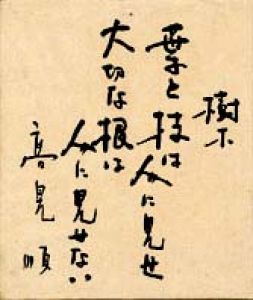 樹木
葉と枝は人に見せ
大切な根は
人に見せない
高見順